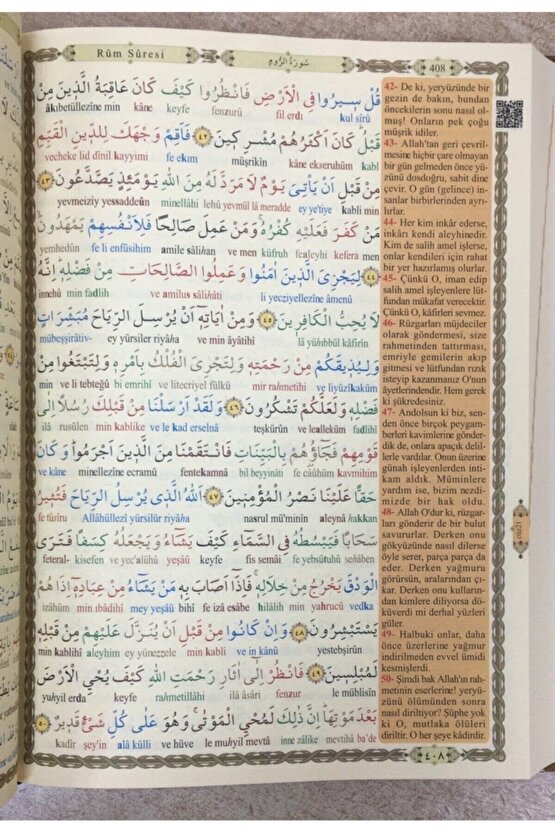 Rûm Sûresi
سُورَةُ الرُّومِ
408
قُلْ سِيرُوا فِى الْاَرْضِ فَانْظُرُوا كَيْفَ كَانَ عَاقِبَةُ الَّذِينَ مِنْ
kul sîrû fil erdı fenzurû keyfe kâne âkıbetüllezîne min
قَبْلُ كَانَ اَكْثَرُهُمْ مُشْرِكِينَ ﴿٤٢﴾ فَاَقِمْ وَجْهَكَ لِلدِّينِ الْقَيِّمِ
kabl kâne ekseruhüm müşrikîn fe ekım vecheke lid dînil kayyimi
مِنْ قَبْلِ اَنْ يَأْتِىَ يَوْمٌ لَا مَرَدَّ لَهُ مِنَ اللهِ يَوْمَئِذٍ يَصَّدَّعُونَ ﴿٤٣﴾
kabli min ey ye'tiye lehü yevmül lâ meradde minellâhi yevmeiziy yessaddeûn
مَنْ كَفَرَ فَعَلَيْهِ كُفْرُهُ وَمَنْ عَمِلَ صَالِحًا فَلِاَنْفُسِهِمْ يَمْهَدُونَ
men kefera fealeyhi küfruh ve men amile sâlihan fe li enfüsihim yemhedûn
﴿٤٤﴾ لِيَجْزِىَ الَّذِينَ اٰمَنُوا وَعَمِلُوا الصَّالِحَاتِ مِنْ فَضْلِهِ اِنَّهُ
li yecziyellezîne âmenû ve amilus sâlihâti min fadlih innehû
لَا يُحِبُّ الْكَافِرِينَ ﴿٤٥﴾ وَمِنْ اٰيَاتِهِ اَنْ يُرْسِلَ الرِّيَاحَ مُبَشِّرَاتٍ
lâ yuhıbbül kâfirîn ve min âyâtihî ey yürsiler riyâha mübeşşirâtiv-
وَلِيُذِيقَكُمْ مِنْ رَحْمَتِهِ وَلِتَجْرِىَ الْفُلْكُ بِاَمْرِهِ وَلِتَبْتَغُوا مِنْ
ve liyüzîkaküm mir rahmetihî ve litecriyel fülkü bi emrihî ve li tebteğû min
فَضْلِهِ وَلَعَلَّكُمْ تَشْكُرُونَ ﴿٤٦﴾ وَلَقَدْ اَرْسَلْنَا مِنْ قَبْلِكَ رُسُلًا اِلٰى
fadlihî ve lealleküm teşkürûn ve le kad erselnâ min kablike rusülen ilâ
قَوْمِهِمْ فَجَاؤُهُمْ بِالْبَيِّنَاتِ فَانْتَقَمْنَا مِنَ الَّذِينَ اَجْرَمُوا وَكَانَ
kavmihim fe câûhüm bil beyyinâti fentekamnâ minellezîne ecramû ve kâne
حَقًّا عَلَيْنَا نَصْرُ الْمُؤْمِنِينَ ﴿٤٧﴾ اَللهُ الَّذِى يُرْسِلُ الرِّيَاحَ فَتُثِيرُ
hakkan aleynâ nasrul mü'minîn Allâhüllezî yürsilür riyâha fe tüsîru
سَحَابًا فَيَبْسُطُهُ فِى السَّمَاءِ كَيْفَ يَشَاءُ وَيَجْعَلُهُ كِسَفًا فَتَرَى
sehâben fe yebsütuhû fis semâi keyfe yeşâü ve yec'alühû kisefen feteral-
الْوَدْقَ يَخْرُجُ مِنْ خِلَالِهِ فَاِذَا اَصَابَ بِهِ مَنْ يَشَاءُ مِنْ عِبَادِهِ اِذَا هُمْ
vedka min yahrucü hilâlih fe izâ esâbe bihî mey yeşâü min ıbâdihî izâhüm
يَسْتَبْشِرُونَ ﴿٤٨﴾ وَاِنْ كَانُوا مِنْ قَبْلِ اَنْ يُنَزَّلَ عَلَيْهِمْ مِنْ قَبْلِهِ
yestebşirûn ve in kânû min kabli ey yünezzele aleyhim min kablihî
لَمُبْلِسِينَ ﴿٤٩﴾ فَانْظُرْ اِلٰى اٰثَارِ رَحْمَتِ اللهِ كَيْفَ يُحْيِى الْاَرْضَ
le müblisîn fenzur ilâ âsâri rahmetillâhi keyfe yuhyil erda
بَعْدَ مَوْتِهَا اِنَّ ذٰلِكَ لَمُحْيِى الْمَوْتٰى وَهُوَ عَلٰى كُلِّ شَىْءٍ قَدِيرٌ ﴿٥٠﴾
ba'de mevtihâ inne zâlike le muhyil mevtâ ve hüve alâ külli şey'in kadîr
42- De ki, yeryüzünde bir
gezin de bakın, bundan
öncekilerin sonu nasıl ol-
muş! Onların pek çoğu
müşrik idiler.
43- Allah'tan geri çevril-
mesine hiçbir çare olmayan
bir gün gelmeden önce yü-
zünü dosdoğru, sabit dine
çevir. O gün (gelince) in-
sanlar birbirlerinden ayrı-
lırlar.
44- Her kim inkâr ederse,
inkârı kendi aleyhinedir.
Kim de salih amel işlerse,
onlar kendileri için rahat
bir yer hazırlamış olurlar.
45- Çünkü O, iman edip
salih amel işleyenlere lüt-
fundan mükafat verecektir.
Çünkü O, kâfirleri sevmez.
46- Rüzgarları müjdeciler
olarak göndermesi, size
rahmetinden tattırması,
emriyle gemilerin akıp
gitmesi ve lütfundan rızık
isteyip kazanmanız O'nun
âyetlerindendir. Hem gerek
ki şükredesiniz.
47- Andolsun ki biz, sen-
den önce birçok peygam-
berleri kavimlerine gönder-
dik de, onlara apaçık delil-
lerle vardılar. Onun üzerine
günah işleyenlerden inti-
kam aldık. Müminlere
yardım ise, bizim nezdi-
mizde bir hak oldu.
48- Allah O'dur ki, rüzgar-
ları gönderir de bir bulut
savururlar. Derken onu
gökyüzünde nasıl dilerse
öyle serer, parça parça da
eder. Derken yağmuru
görürsün, aralarından çı-
kar. Derken onu kulların-
dan kimlere diliyorsa dö-
küverdi mi derhal yüzleri
güler.
49- Halbuki onlar, daha
önce üzerlerine yağmur
indirilmeden evvel ümidi
kesmişlerdi.
50- Şimdi bak Allah'ın rah-
metinin eserlerine! yeryü-
zünü ölümünden sonra
nasıl diriltiyor? Şüphe yok
ki O, mutlaka ölüleri
diriltir. O her şeye kâdirdir.
٤٠٨